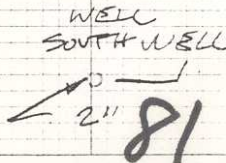 WELL
SOUTH WELL
2"
81